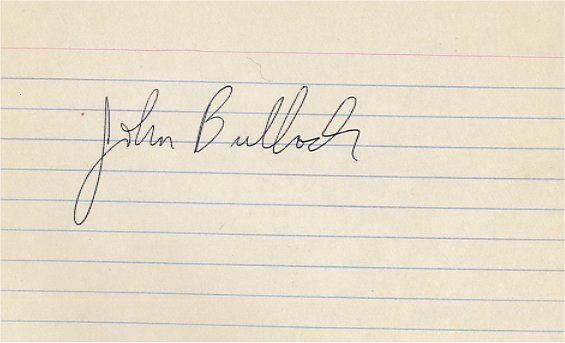 John Bulloch